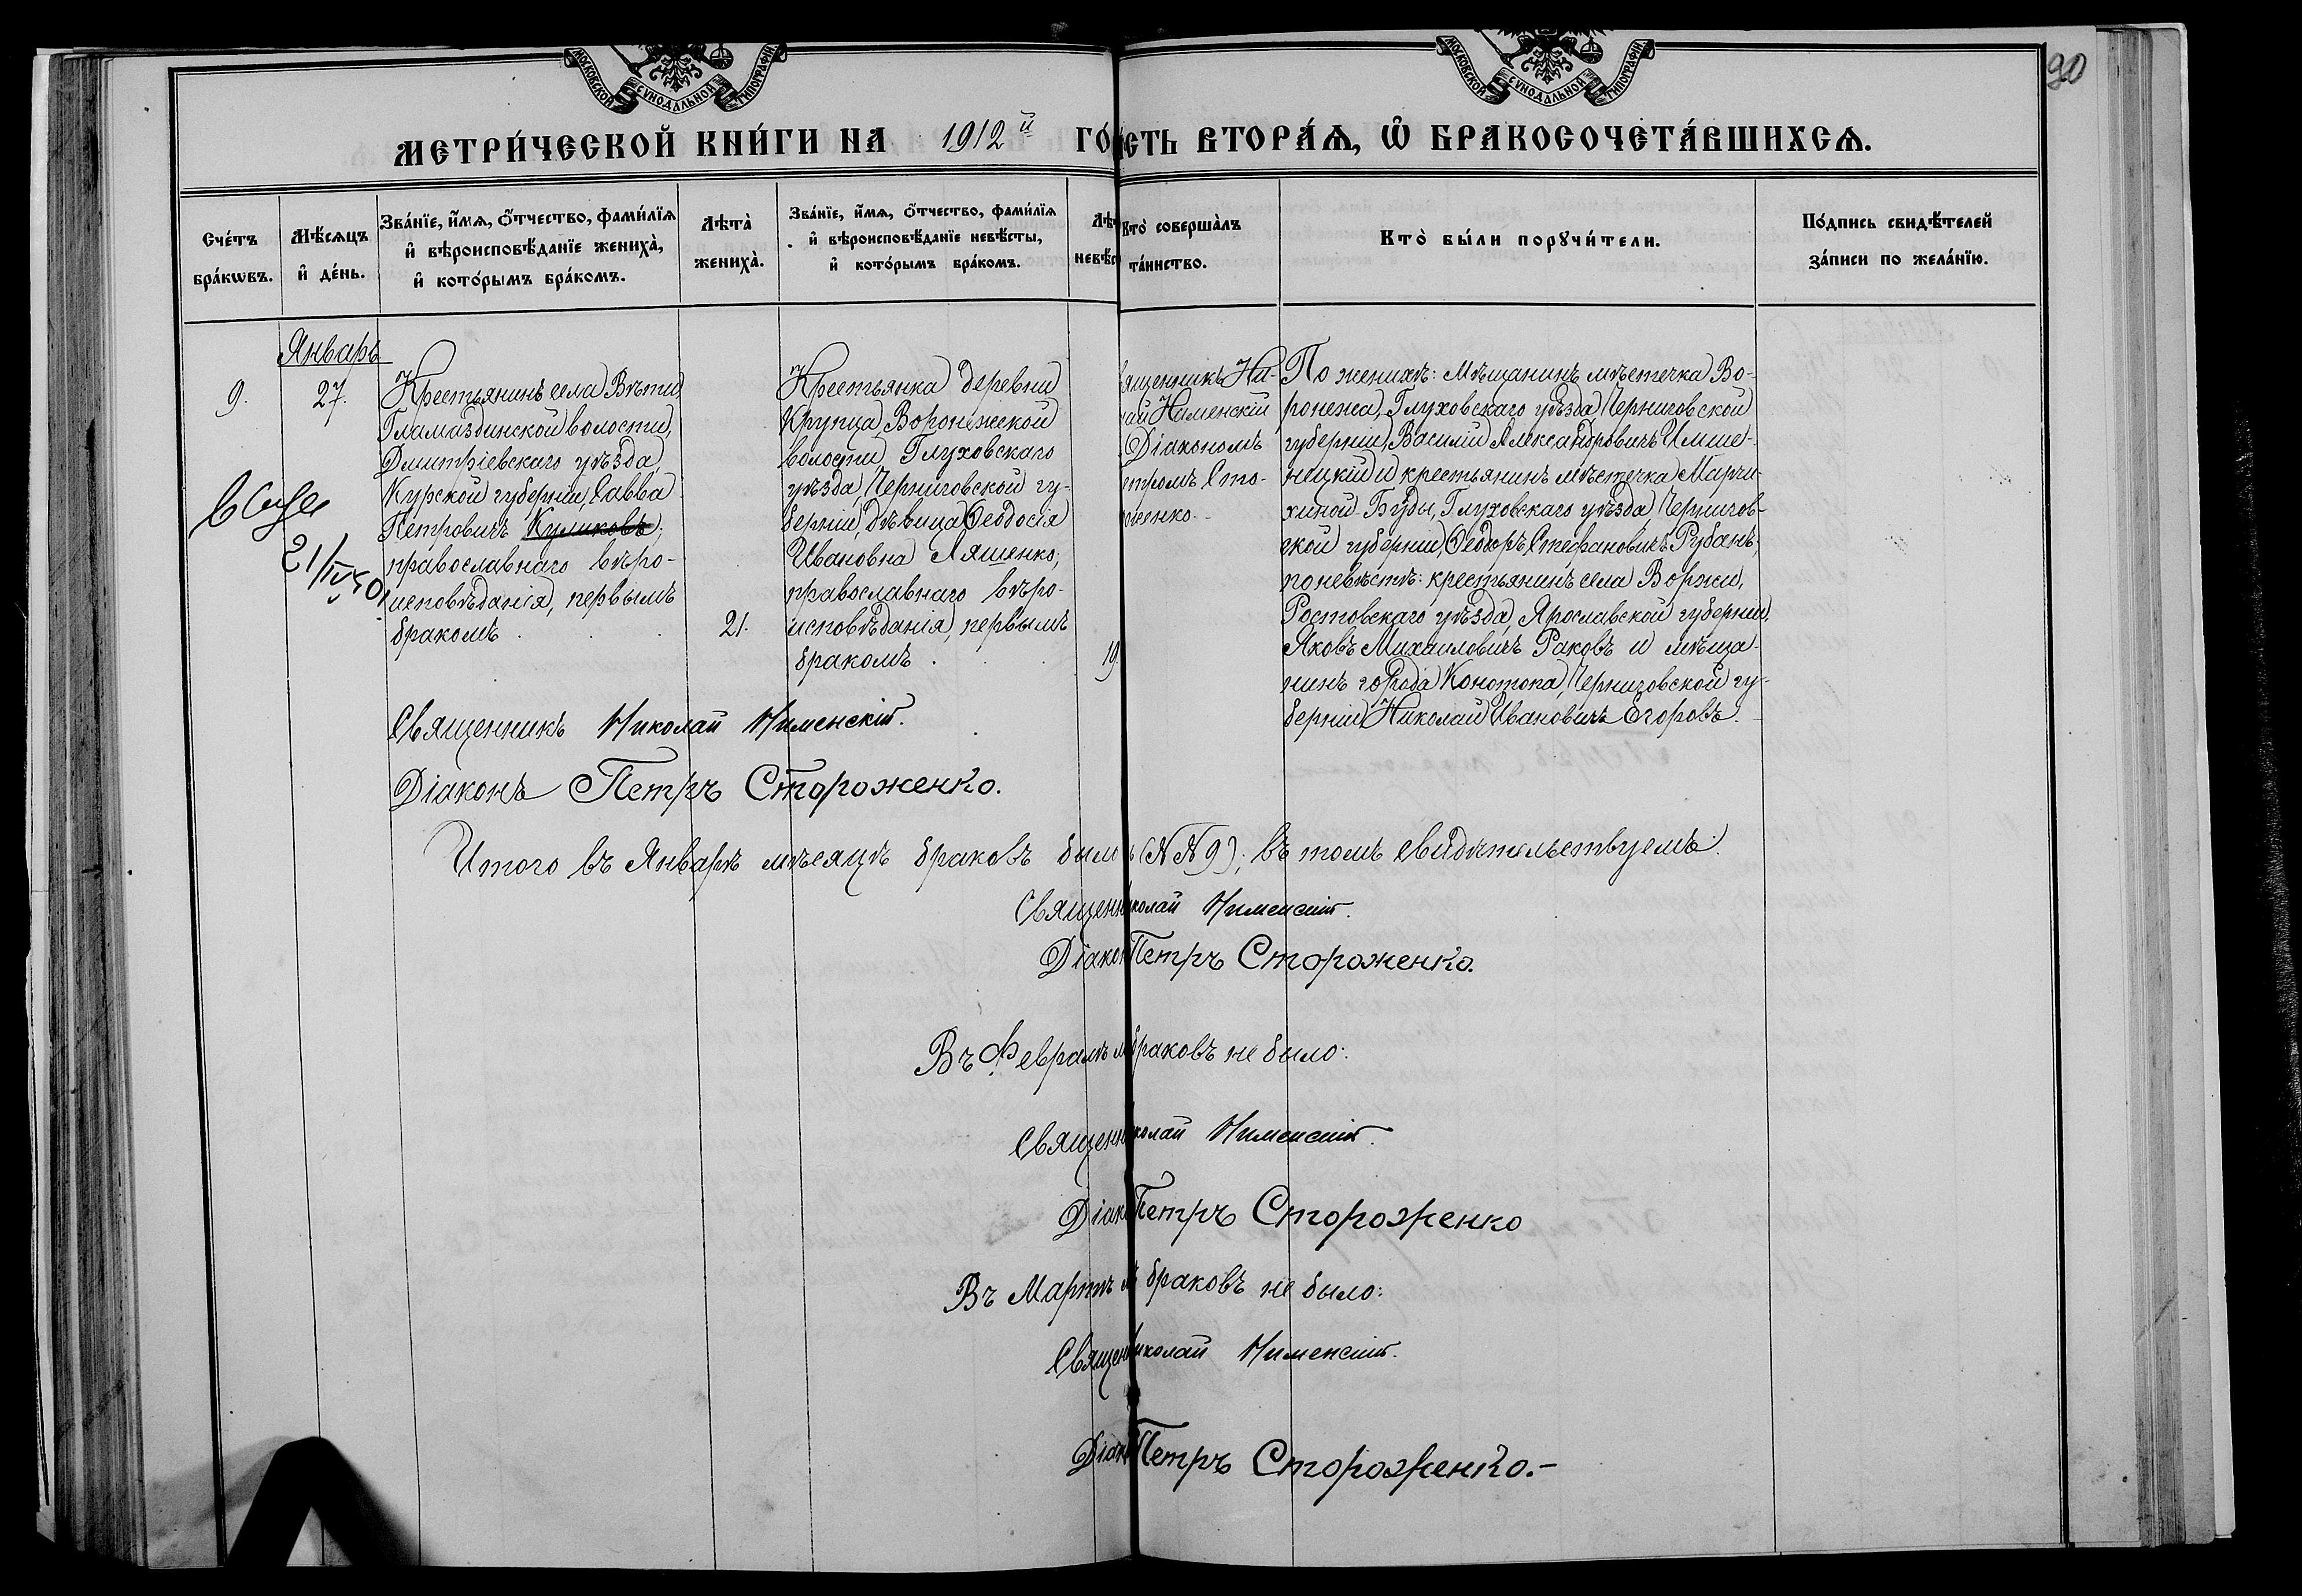 МОСКОВСКОЙ СѴНОДАЛЬНОЙ ТИПОГРАФІИ
МОСКОВСКОЙ СѴНОДАЛЬНОЙ ТИПОГРАФІИ
90
МЕТРИ́ЧЕСКОЙ КНИ́ГИ НА 1912й ГО́
СТЬ ВТОРА́Ѧ, Ѡ҆ БРАКОСОЧЕТА́ВШИХСѦ.
Сче́тъ бра́кѡвъ.
Мѣ́сѧцъ и҆ де́нь.
Зва́нїе, и҆́мѧ, ѻ҆́тчество, фами́лїѧ
и҆ вѣроисповѣ́данїе жениха̀,
и҆ кото́рымъ бра́комъ.
Лѣта̀ жениха̀.
Зва́нїе, и҆́мѧ, ѻ҆́тчество, фами́лїѧ
и҆ вѣроисповѣ́данїе невѣ́сты,
и҆ кото́рымъ бра́комъ.
Лѣ
невѣ́с
Кто̀ соверша̀лъ
та́инство.
Кто̀ бы́ли порꙋчи́тели.
По́дпись свидѣ́телей
за́писи по жела́нїю.
Январь
9.
27.
Крестьянинъ села Вѣти,
Гламаздинской волости,
Дмитріевскаго уѣзда,
Курской губерніи, Савва
Петровичъ Куликовъ;
православнаго вѣро-
исповѣданія, первымъ
бракомъ . . .
21/IV 50
21.
Крестьянка деревни
Крупца, Воронежской
волости, Глуховскаго
уѣзда, Черниговской гу-
берніи, дѣвица Ѳеодосія
Ивановна Ляшенко;
православнаго вѣро-
исповѣданія, первымъ
бракомъ . .
19.
вященникъ Ни-
лай Именскій
Діакономъ
етромъ Сто-
оженко.
По женихѣ: мѣщанинъ мѣстечка Во-
ронежа, Глуховскаго уѣзда, Черниговской
губерніи, Василій Александровичъ Имше-
нецкій и крестьянинъ мѣстечка Марчи-
хиной Буды, Глуховскаго уѣзда, Чернигов-
ской губерніи, Ѳеодоръ Стефановичъ Рубанъ;
по невѣстѣ: крестьянинъ села Воржи,
Ростовскаго уѣзда, Ярославской губерніи,
Яковъ Михаиловичъ Раковъ и мѣща-
нинъ города Конотопа, Черниговской гу-
берніи, Николай Ивановичъ Егоровъ.
Священникъ Николай Именскій.
Діаконъ Петръ Стороженко.
Итого въ Январѣ мѣсяцѣ браковъ был (№№ 9); въ томъ свидѣтельствуемъ:
Священ колай Именскій.
Діакон Петръ Стороженко.
Въ Февралѣ м браковъ не было:
Священ колай Именскій.
Діако Петръ Стороженко
Въ Мартѣ м браковъ не было:
Священ иколай Именскій.
Діако Петръ Стороженко.